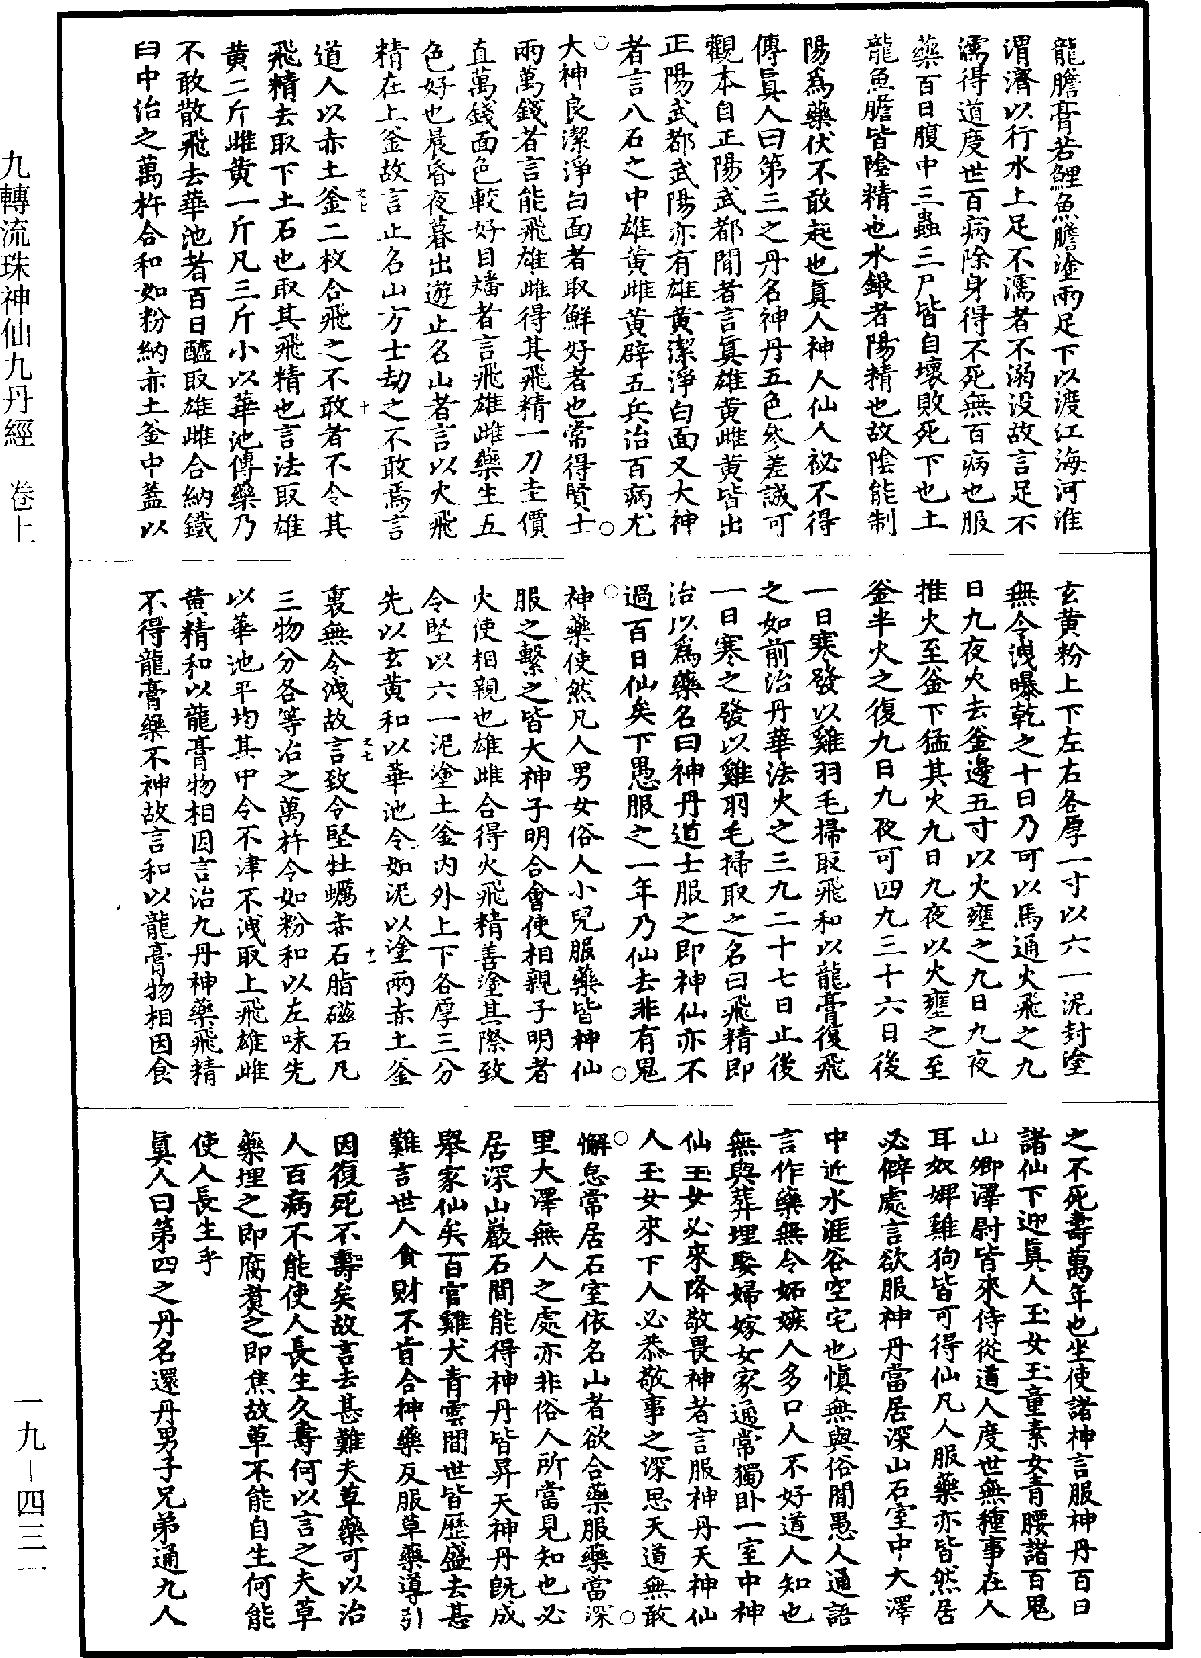 龍膽膏若鯉魚膽塗兩足下以渡江海河淮
渭濟以行水上足不濡者不溺没故言足不
濡得道度世百病除身得不死無百病也服
藥百日腹中三蟲三尸皆自壞敗死下也土
龍魚膽皆陰精也水銀者陽精也故陰能制
陽爲藥伏不敢起也眞人神人仙人祕不得
傳眞人曰第三之丹名神丹五色參差誠可
觀本自正陽武都間者言眞雄黃雌黃皆出
正陽武都武陽亦有雄黃潔淨白面又大神
者言八石之中雄黃雌黃辟五兵治百病尤
大神良潔淨白面者取鮮好者也常得賢士
兩萬錢者言能飛雄雌得其飛精一刀圭價
直萬錢面色較好目皤者言飛雄雌藥生五
色好也晨昏夜暮出遊止名山者言以火飛
精在上釜故言止名山方士劫之不敢焉言
道人以赤土釜二枚合飛之不敢者不令其
飛精去取下土石也取其飛精也言法取雄
黃二斤雌黃一斤凡三斤小以華池傳藥乃
不敢散飛去華池者百日醯取雄雌合納鐵
臼中治之萬杵合和如粉納赤土釜中蓋以
玄黃粉上下左右各厚一寸以六一泥封塗
無令洩曝乾之十日乃可以馬通火飛之九
日九夜火去釜邊五寸以火壅之九日九夜
推火至釜下猛其火九日九夜以火壅之至
釜半火之復九日九夜可四九三十六日後
一日寒發以雞羽毛掃取飛和以龍膏復飛
之如前治丹華法火之三九二十七日止後
一日寒之發以雞羽毛掃取之名曰飛精即
治以爲藥名曰神丹道士服之即神仙亦不
過百日仙矣下愚服之一年乃仙去非有鬼
神藥使然凡人男女俗人小兒服藥皆神仙
服之繫之皆大神子明合會使相親子明者
火使相親也雄雌合得火飛精善塗其際致
令堅以六一泥塗土釜內外上下各厚三分
先以玄黃和以華池令如泥以塗兩赤土釜
裏無令洩故言致令堅牡蠣赤石脂磁石凡
三物分各等冶之萬杵令如粉和以左味先
以華池平均其中令不津不洩取上飛雄雌
黃精和以龍膏物相因言治九丹神藥飛精
不得龍膏藥不神故言和以龍膏物相因食
之不死壽萬年也坐使諸神言服神丹百日
諸仙下迎眞人玉女玉童素女青腰諸百鬼
山卿澤尉皆來侍從道人度世無種事在人
耳奴婢雞狗皆可得仙凡人服藥亦皆然居
必僻處言欲服神丹當居深山石室中大澤
中近水涯谷空宅也愼無與俗間愚人通語
言作藥無令妬嫉人多口人不好道人知也
無與葬埋娶婦嫁女家通常獨卧一室中神
仙玉女必來降敬畏神者言服神丹天神仙
人玉女來下人必恭敬事之深思天道無敢
懈怠常居石室依名山者欲合藥服藥當深
里大澤無人之處亦非俗人所當見知也必
居深山巖石間能得神丹皆昇天神丹既成
舉家仙矣百官雞犬青雲間世皆歷盛去甚
難言世人貪財不肯合神藥反服草藥導引
因復死不壽矣故言去甚難夫草藥可以治
人百病不能使人長生久壽何以言之夫草
藥埋之即腐煑之即焦故草不能自生何能
使人長生乎
眞人曰第四之丹名還丹男子兄弟通九人
九轉流珠神仙九丹經 卷上
一九－四三一